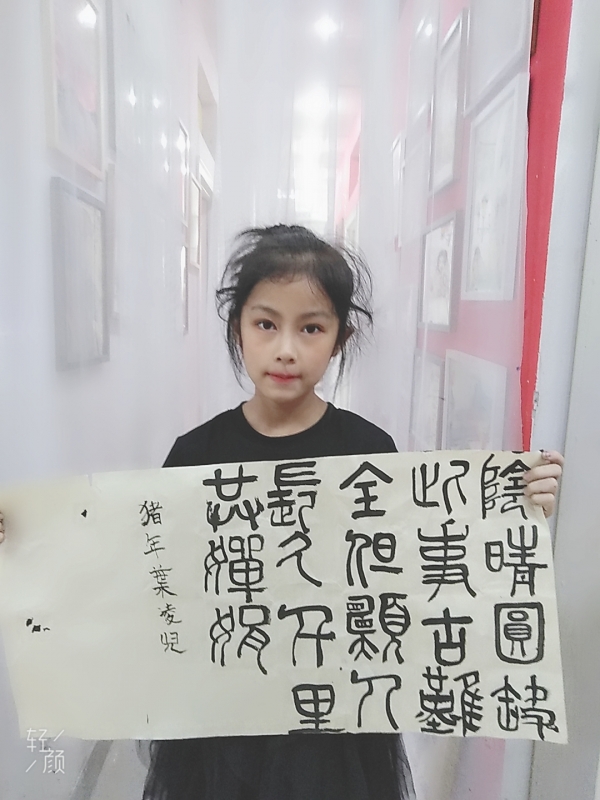 陰晴圓缺
此事古難
全但願人
長久千里
共嬋娟
猪年葉凌兒
轻颜